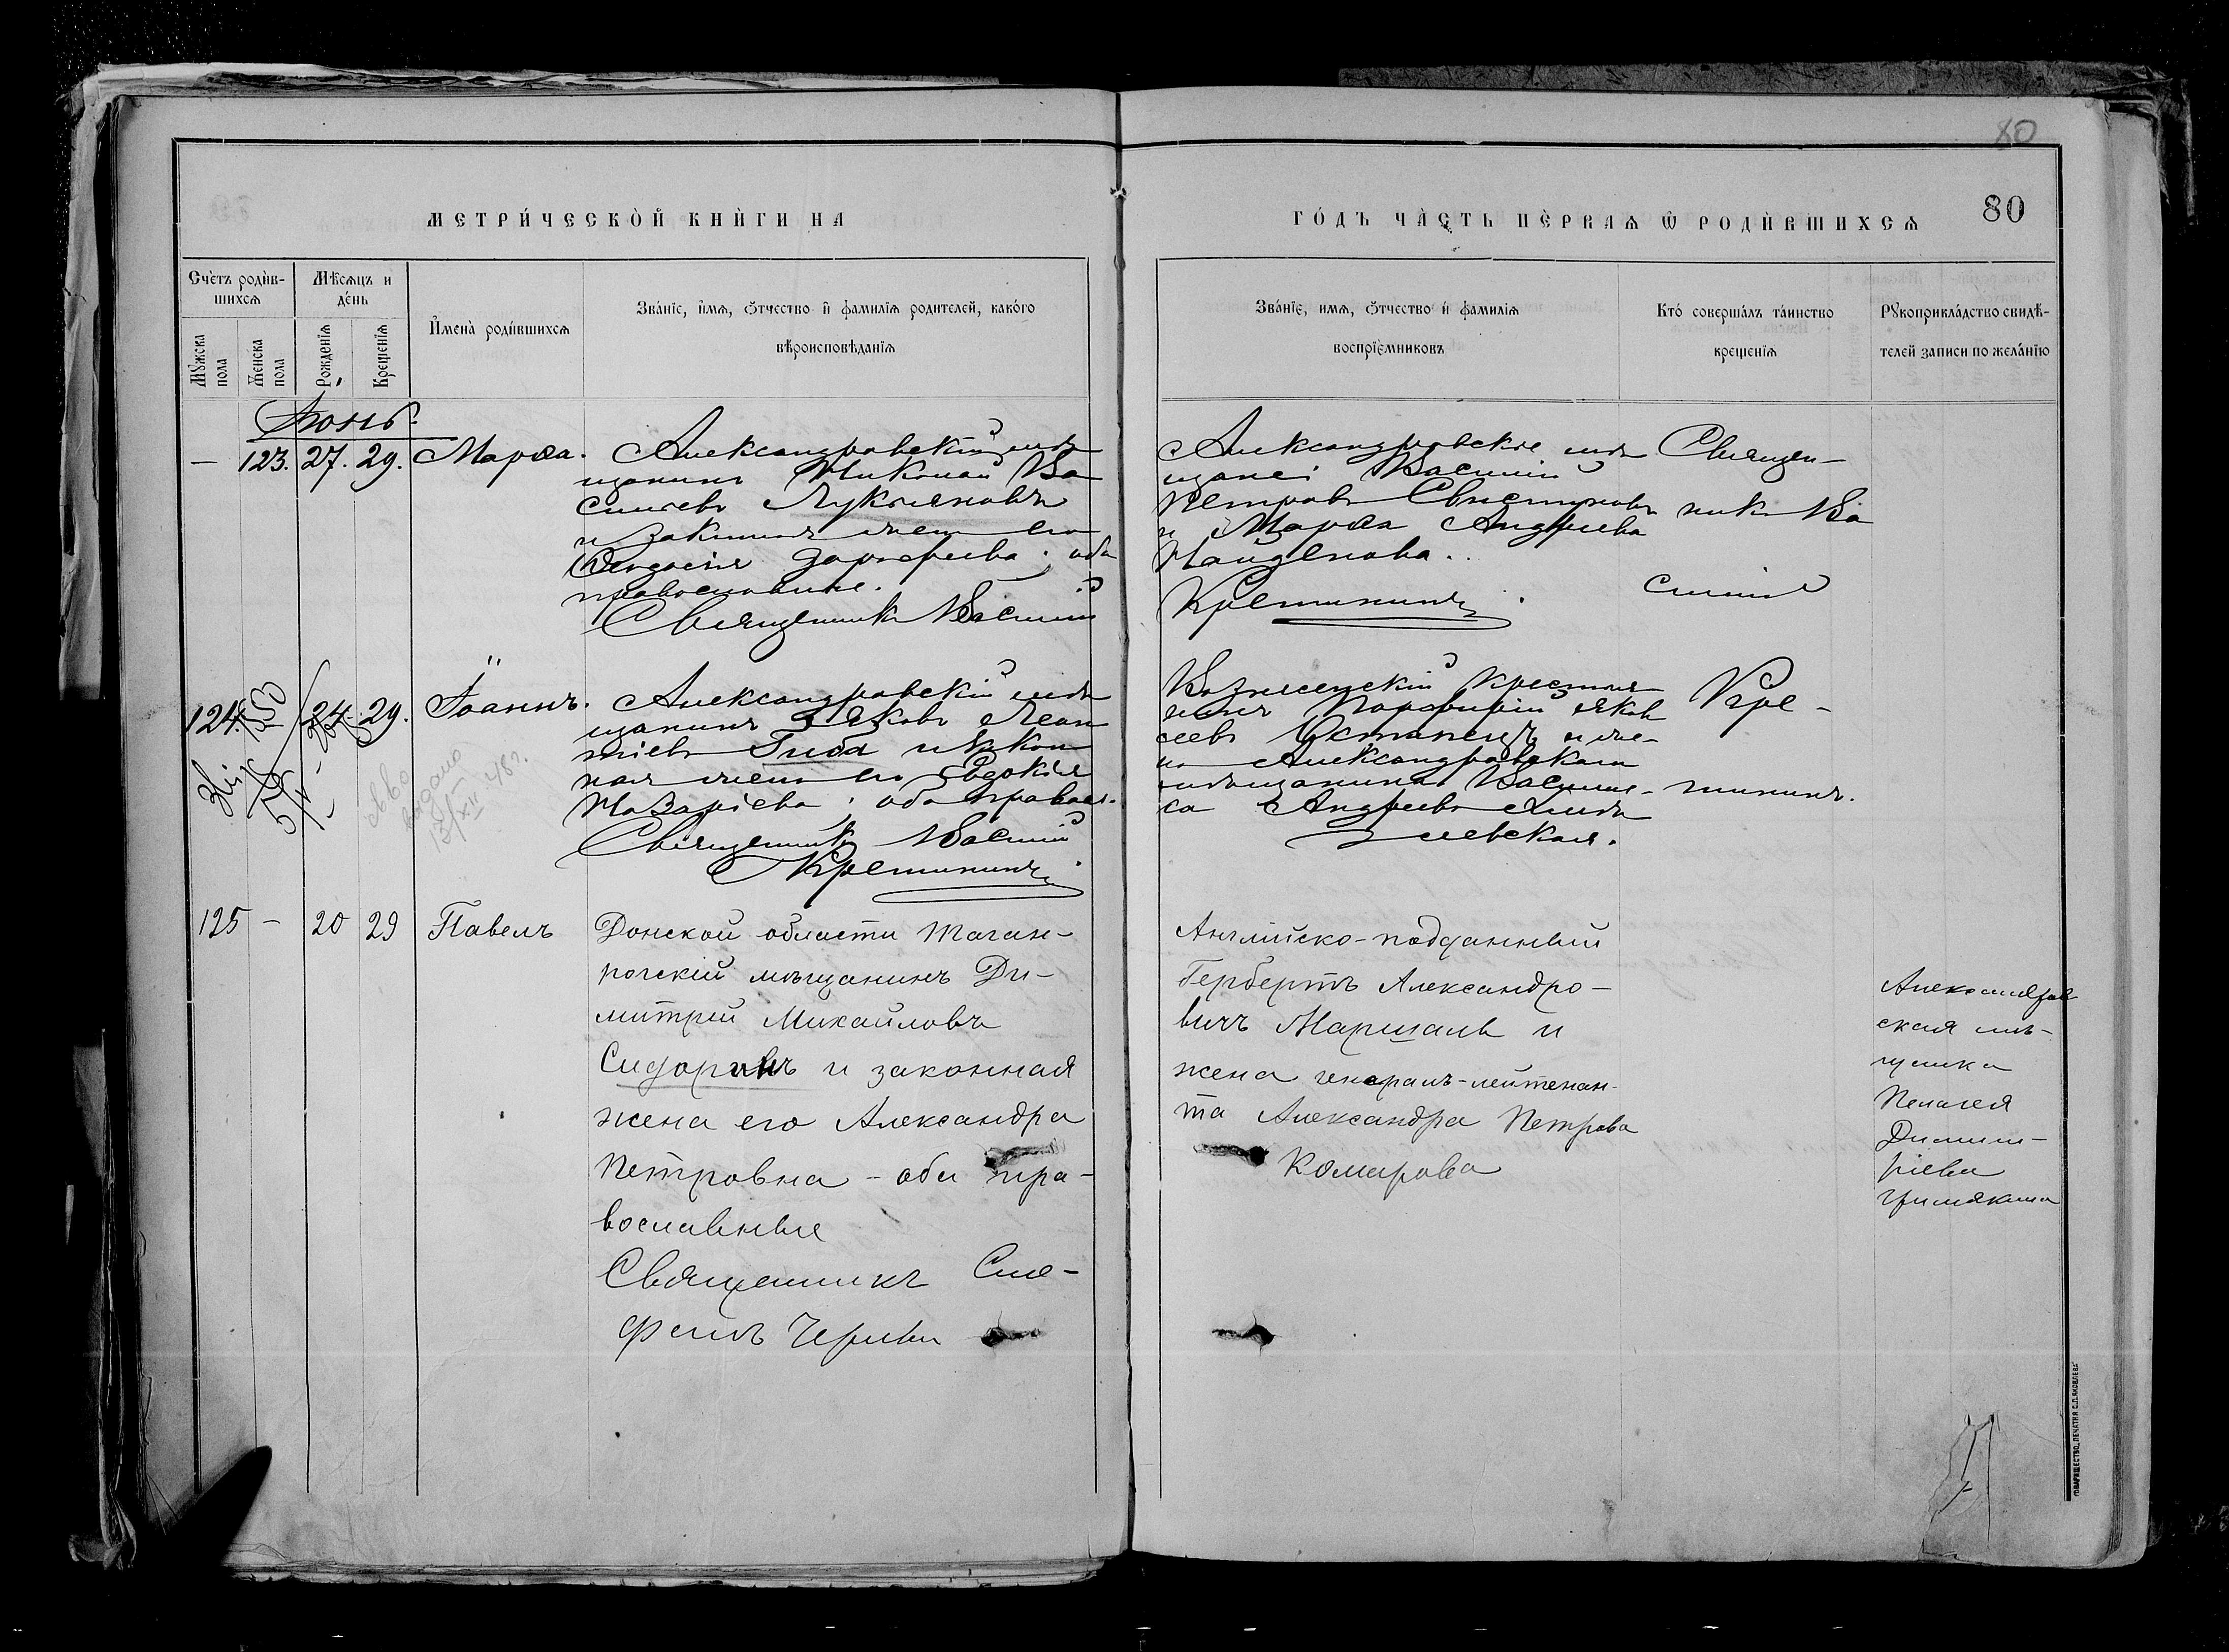 80
МЕТРИ́ЧЕСКОЙ КНИ́ГИ НА
ГО́ДЪ ЧА́СТЬ ПЕ́РВАѦ Ѡ РОДИ́ВШИХСѦ
80
Сче́тъ роди́в-
шихсѧ
Мѣ́сѧцъ и
де́нь
Мꙋ́жска
пола
Же́нска
пола
Рожде́нїѧ
Креще́нїѧ
И҆мена̀ роди́вшихсѧ
Зва́нїе, и҆́мѧ, ѻ҆́тчество и҆ фамилїѧ родителей, како́го
вѣроисповѣ́данїѧ
Зва́нїе, имѧ, ѻ҆́тчество и҆ фамилїѧ
воспрїе́мниковъ
Кто́ соверша́лъ та́инство
креще́нїѧ
Рꙋкоприкла́дство свидѣ́-
телей записи по жела́нїю
Іюнь.
— 123. 27. 29. Марѳа.
Александровскій мѣ
щанинъ Николай Ва
сильевъ Лукьяновъ
и законная жена его
Ѳеодосія ; оба
православные.
Священникъ Василій
Александровскіе мѣ
щане: Василій
Петровъ Свистуновъ
и Марѳа Андреева
Найденова.
Кремининъ.
Священ-
никъ Ва
силій
124. 24. 29. Іоаннъ.
выдано
13/XII 48г.
Александровскій мѣ
щанинъ Яковъ Леон
тіевъ Гиба и закон
ная жена его Евдокія
Назаріева; оба правосл.
Священникъ Василій
Кремининъ.
Вознесенскій крестья
нинъ Порфирій Яков
левъ и же-
на Александровскаго
мѣщанина Василис-
са Андреева
левская.
Кре-
мининъ.
125 — 20 29 Павелъ
Донской области Таган-
рогскій мѣщанинъ Ди-
митрій Михайловъ
Сидоринъ и законная
жена его Александра
Петровна - оба пра-
вославные
Священникъ Сте-
фанъ
Англійско-подданный
Гербертъ Александро-
вичъ Маршаль и
жена генералъ-лейтенан-
та Александра Петрова
Комарова
Александров
ская мѣ-
щанка
Пелагея
Димит-
ріева